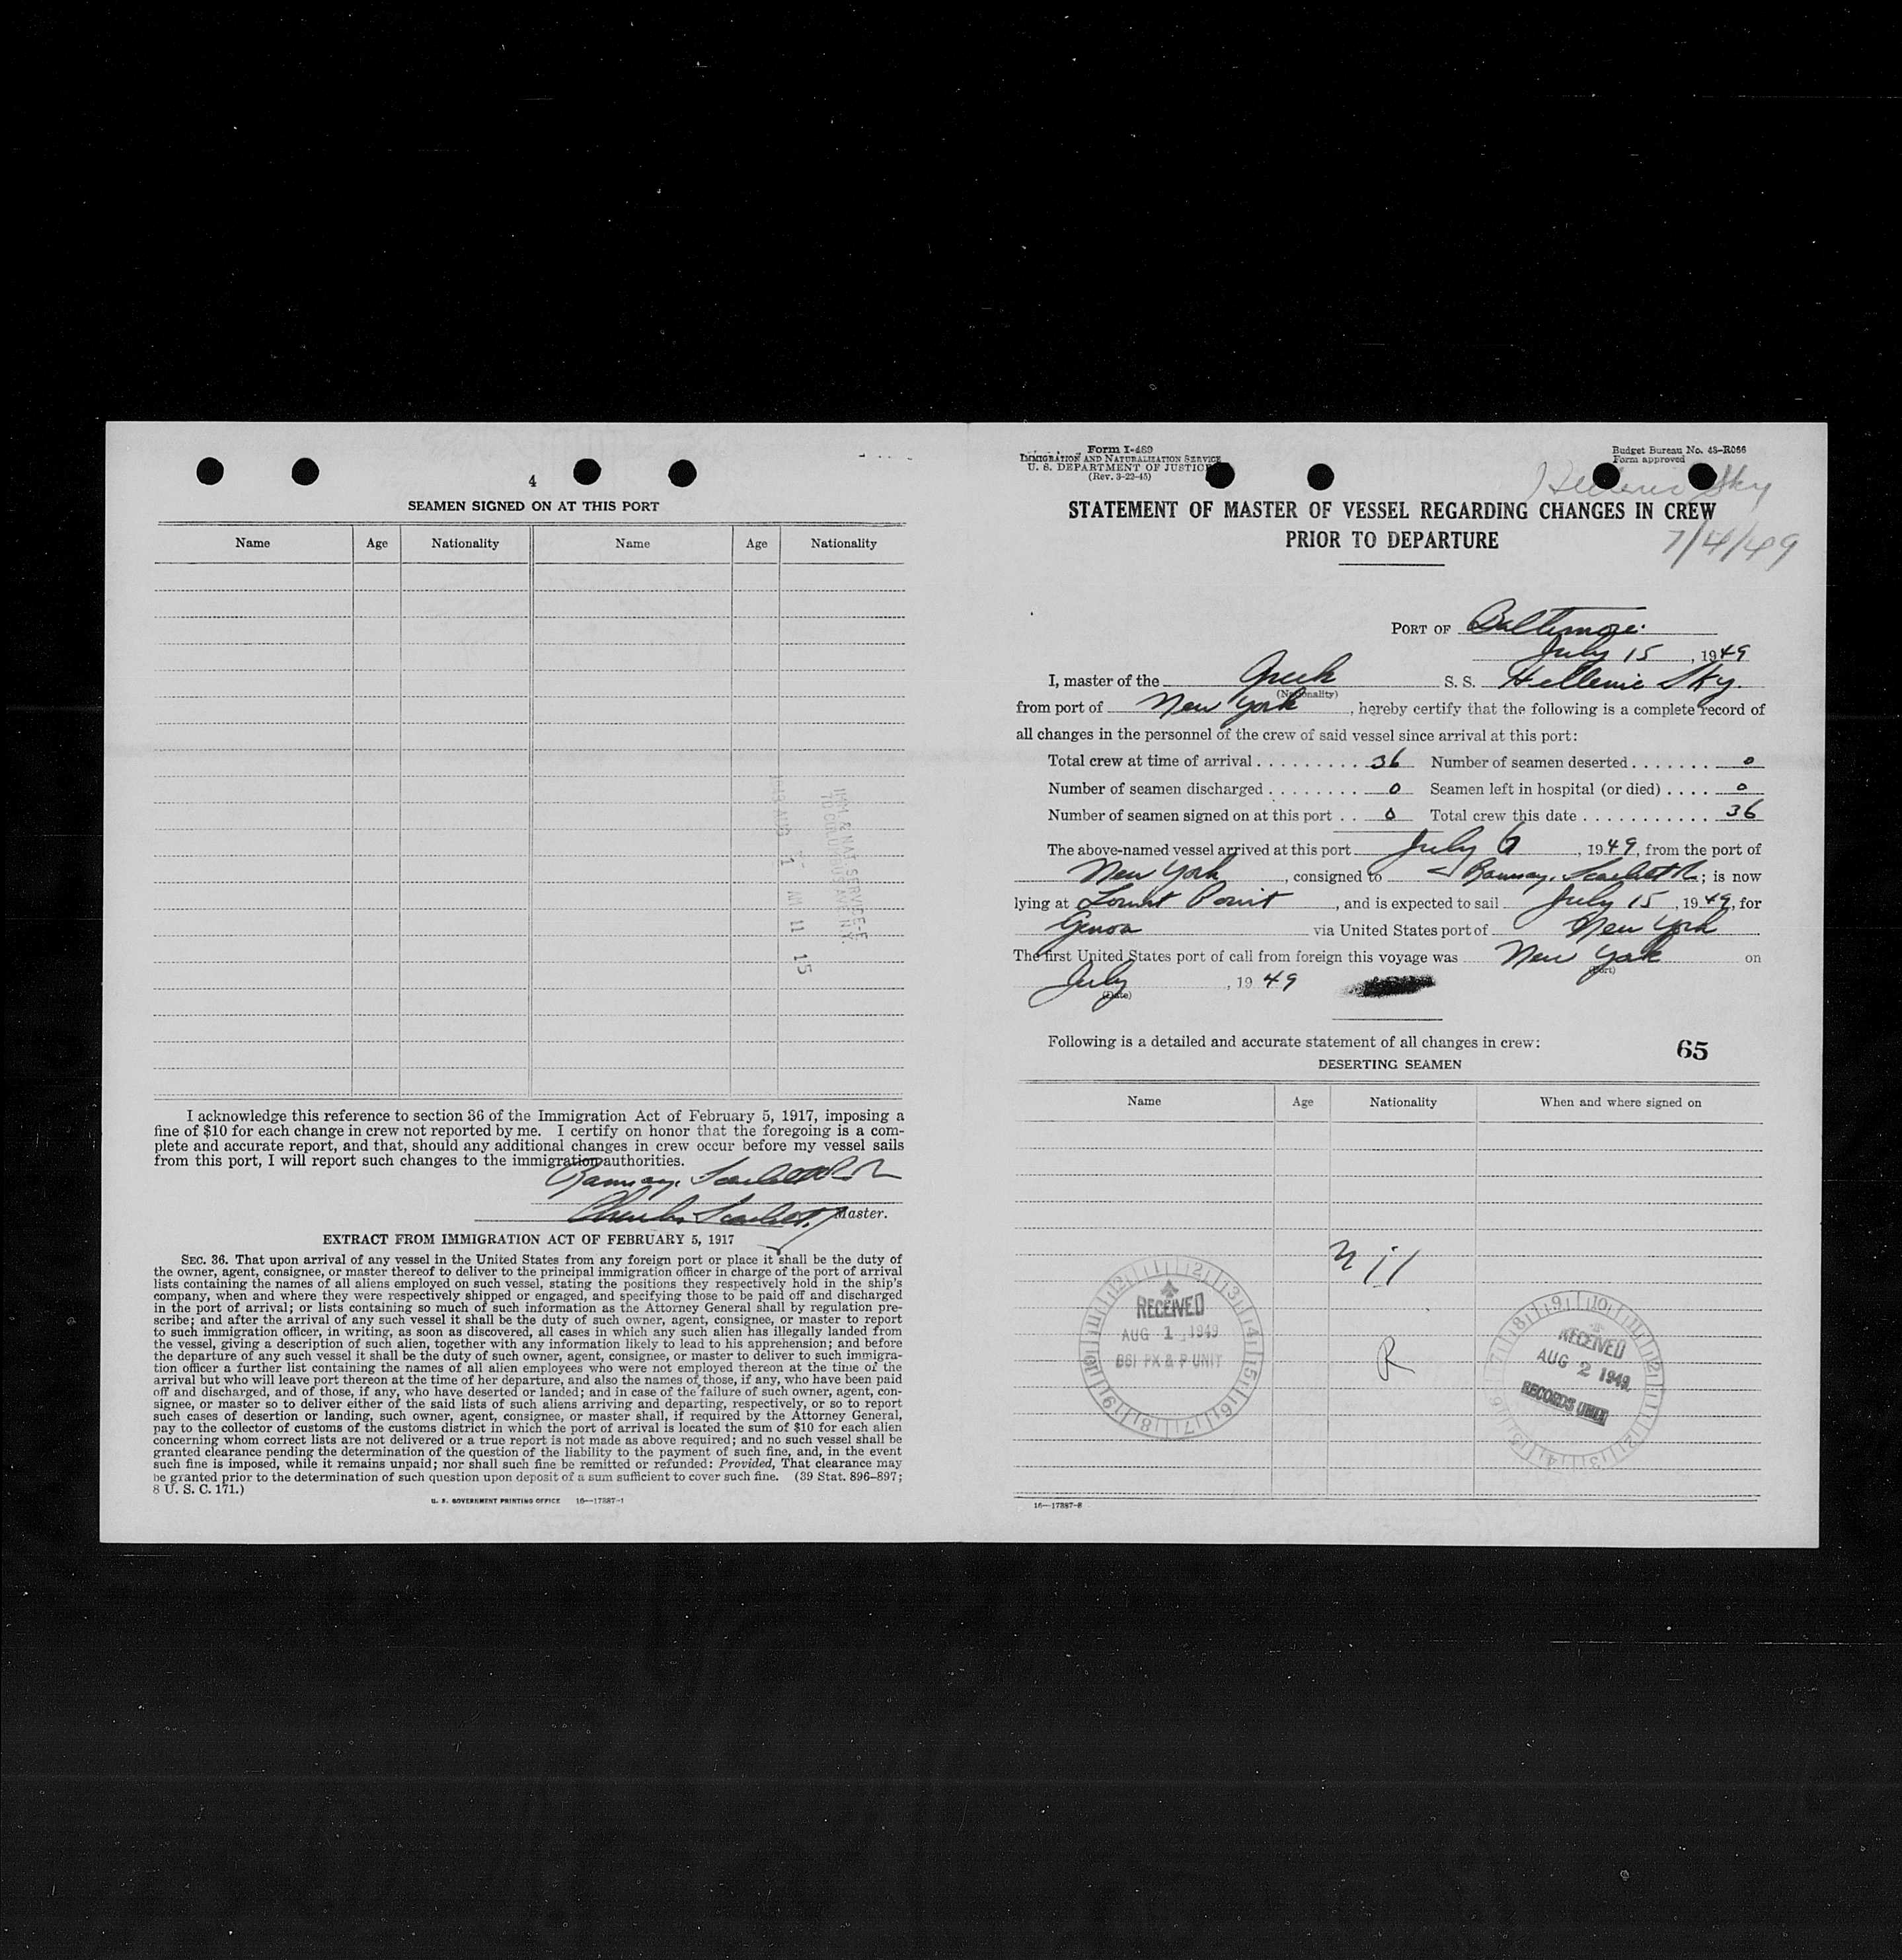 4
SEAMEN SIGNED ON AT THIS PORT
Name Age Nationality Name Age Nationality
IMM. & NAT. SERVICE
70 COLUMBUS AVE N.Y.
1949 AUG 1 AM 11 15
I acknowledge this reference to section 36 of the Immigration Act of February 5, 1917, imposing a
fine of $10 for each change in crew not reported by me. I certify on honor that the foregoing is a com-
plete and accurate report, and that, should any additional changes in crew occur before my vessel sails
from this port, I will report such changes to the immigration authorities.
Ramsay, Scarlett & Co
Charles Scarlett, Master.
EXTRACT FROM IMMIGRATION ACT OF FEBRUARY 5, 1917
SEC. 36. That upon arrival of any vessel in the United States from any foreign port or place it shall be the duty of
the owner, agent, consignee, or master thereof to deliver to the principal immigration officer in charge of the port of arrival
lists containing the names of all aliens employed on such vessel, stating the positions they respectively hold in the ship's
company, when and where they were respectively shipped or engaged, and specifying those to be paid off and discharged
in the port of arrival; or lists containing so much of such information as the Attorney General shall by regulation pre-
scribe; and after the arrival of any such vessel it shall be the duty of such owner, agent, consignee, or master to report
to such immigration officer, in writing, as soon as discovered, all cases in which any such alien has illegally landed from
the vessel, giving a description of such alien, together with any information likely to lead to his apprehension; and before
the departure of any such vessel it shall be the duty of such owner, agent, consignee, or master to deliver to such immigra-
tion officer a further list containing the names of all alien employees who were not employed thereon at the time of the
arrival but who will leave port thereon at the time of her departure, and also the names of those, if any, who have been paid
off and discharged, and of those, if any, who have deserted or landed; and in case of the failure of such owner, agent, con-
signee, or master so to deliver either of the said lists of such aliens arriving and departing, respectively, or so to report
such cases of desertion or landing, such owner, agent, consignee, or master shall, if required by the Attorney General,
pay to the collector of customs of the customs district in which the port of arrival is located the sum of $10 for each alien
concerning whom correct lists are not delivered or a true report is not made as above required; and no such vessel shall be
granted clearance pending the determination of the question of the liability to the payment of such fine, and, in the event
such fine is imposed, while it remains unpaid; nor shall such fine be remitted or refunded: Provided, That clearance may
be granted prior to the determination of such question upon deposit of a sum sufficient to cover such fine. (39 Stat. 896–897;
8 U. S. C. 171.)
U. S. GOVERNMENT PRINTING OFFICE 16—17887-1
Form I-489
IMMIGRATION AND NATURALIZATION SERVICE
U. S. DEPARTMENT OF JUSTICE
(Rev. 3-22-45)
Budget Bureau No. 43–R066
Form approved
Hellenic Sky
7/4/49
STATEMENT OF MASTER OF VESSEL REGARDING CHANGES IN CREW
PRIOR TO DEPARTURE
PORT OF Baltimore.
July 15, 1949
I, master of the Greek S. S. Hellenic Sky.
(Nationality)
from port of New York, hereby certify that the following is a complete record of
all changes in the personnel of the crew of said vessel since arrival at this port:
Total crew at time of arrival . . . . . . . . . . 36 Number of seamen deserted . . . . . . . 0
Number of seamen discharged . . . . . . . . 0 Seamen left in hospital (or died) . . . . 0
Number of seamen signed on at this port . . 0 Total crew this date . . . . . . . . . . . . 36
The above-named vessel arrived at this port July 6, 1949, from the port of
New York, consigned to Ramsay, Scarlett & Co; is now
lying at Locust Point, and is expected to sail July 15, 1949, for
Genoa via United States port of New York
The first United States port of call from foreign this voyage was New York on
(Port)
July, 1949
(Date)
Following is a detailed and accurate statement of all changes in crew:
65
DESERTING SEAMEN
Name Age Nationality When and where signed on
Nil
R
RECEIVED
AUG 1 1949
BSI PX & P UNIT
RECEIVED
AUG 2 1949
RECORDS UNIT
16—17887-8